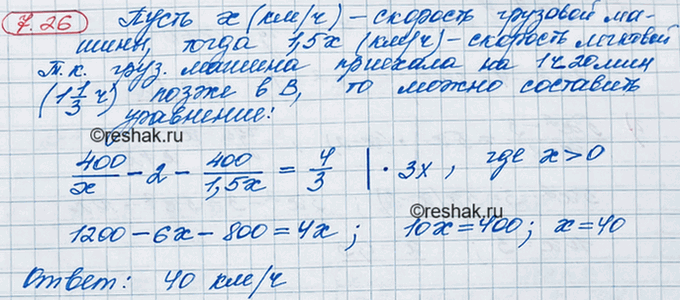 7.26 Пусть x (км/ч) – скорость грузовой ма-
шины, тогда 1,5x (км/ч) – скорость легковой
Т.к. груз. машина приехала на 1ч 20мин
(1 1/3 ч) позже в В, то можно составить
уравнение:
©reshak.ru
400/x - 2 - 400/1,5x = 4/3 | · 3x, где x>0
©reshak.ru
1200 - 6x - 800 = 4x; 10x = 400; x = 40
Ответ: 40 км/ч